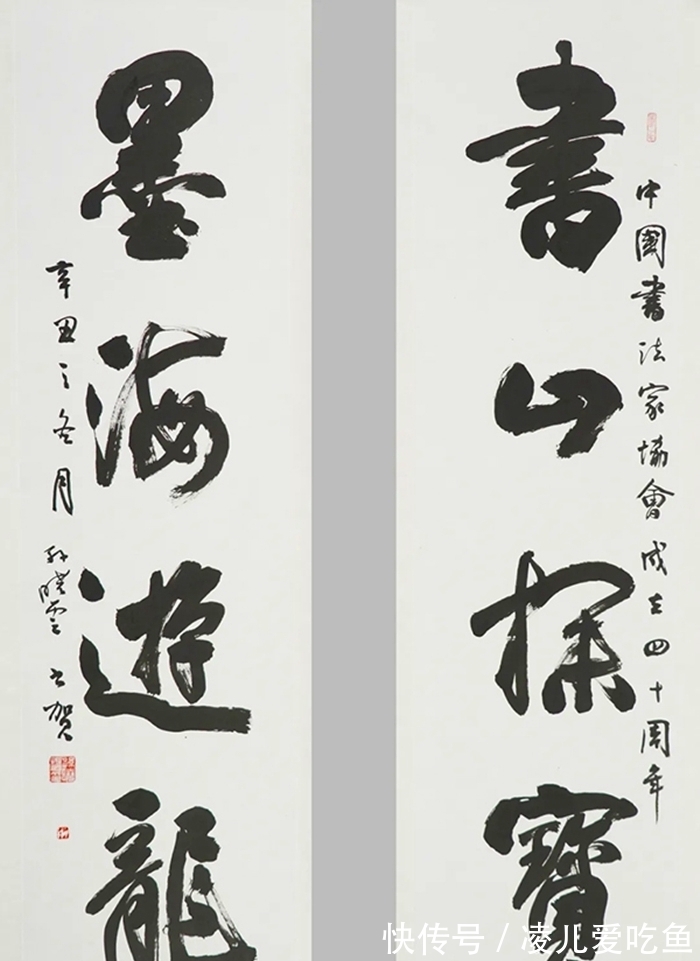 中國書法家協會成立四十周年
書山探寶
墨海遊龍
辛丑之冬月孫曉雲書賀
快传号/凌儿爱吃鱼